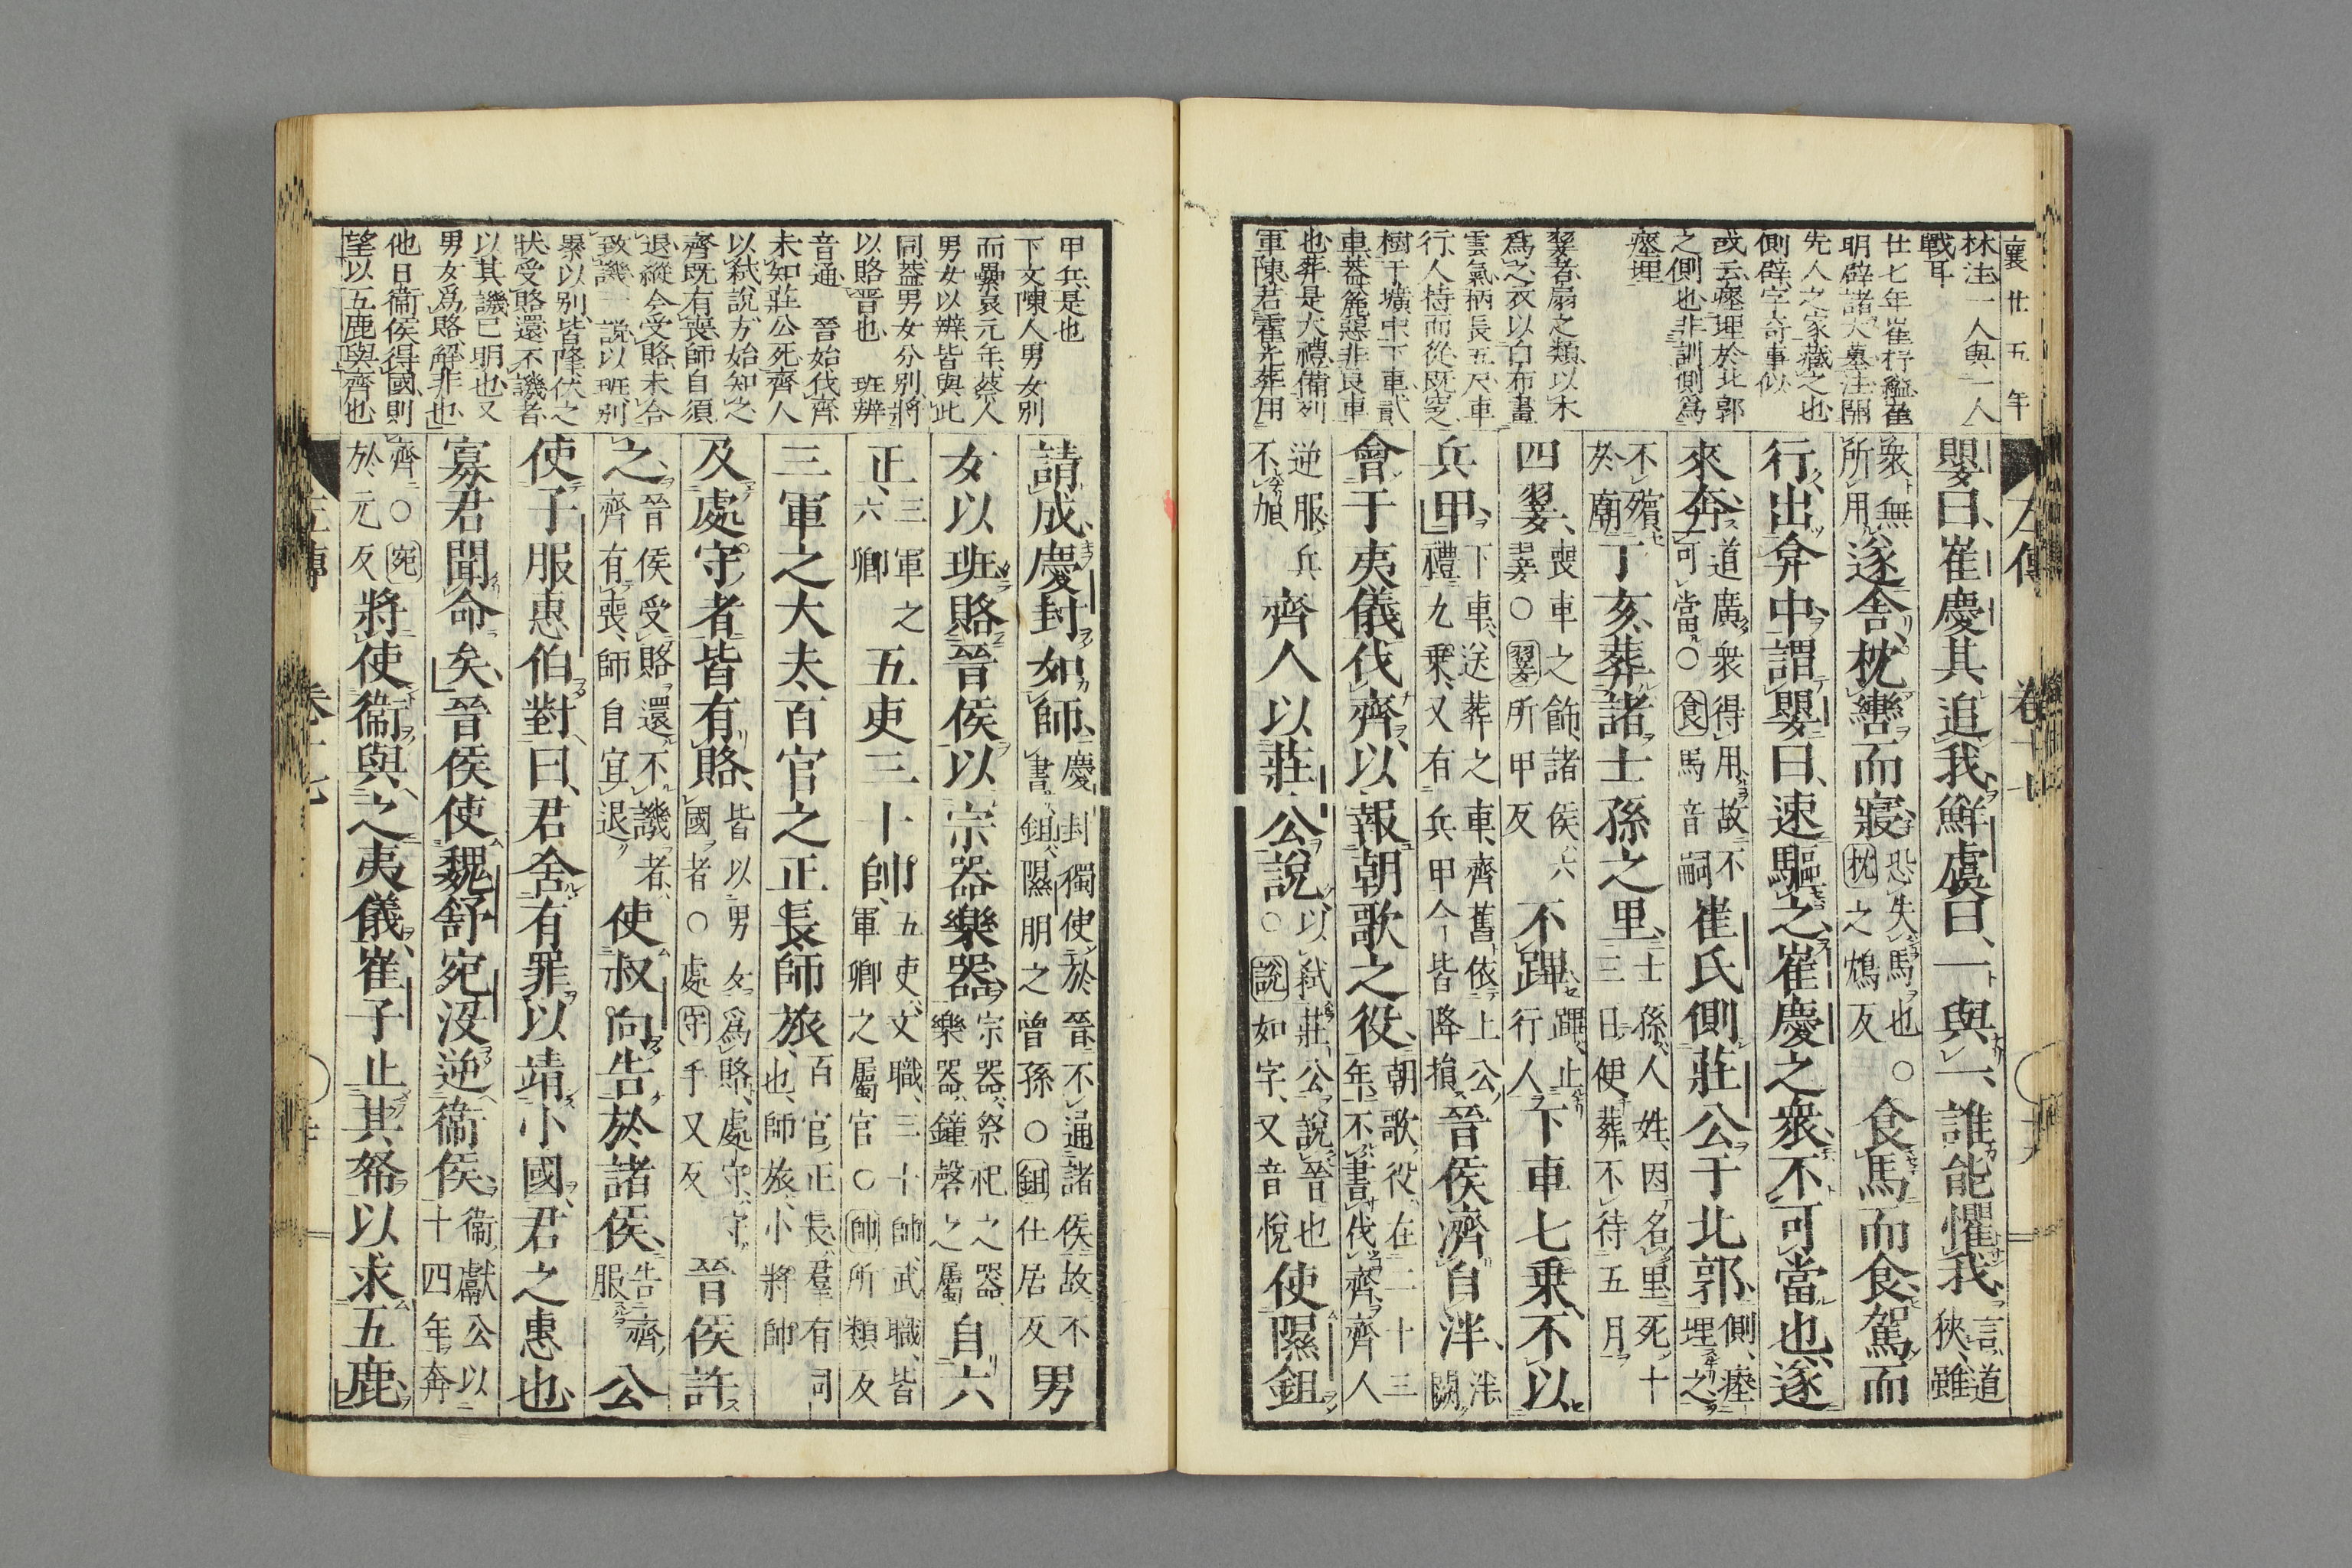 襄廿五年
林注一人與一人
戰耳
廿七年崔杼縊崔
明辟諸大墓注開
先人之家藏之也
側辟字奇事似
或云瘞埋於北郭
之側也非訓側爲
瘞埋
翣者扇之類以木
爲之衣以白布畫
雲氣柄長五尺車
行人持而從既窆
樹于壙中下車貳
車葢麄惡非良車
也葬是大禮備列
軍陳君霍光葬用
左傳 卷十七
嬰曰、崔慶其追我鮮虞曰、一與一、誰能懼我言道狹、雖
衆無所用遂舍枕轡而寢恐失馬也○枕之鴆反食馬而食駕而
行出弇中謂嬰曰、速驅之、崔慶之衆不可當也、遂
來奔道廣衆得用故不可當○食馬音嗣崔氏側莊公于北郭側、瘞埋之
不殯於廟丁亥、葬諸士孫之里士孫人姓、因名里死十三日便葬不待五月
四翣、喪車之飾、諸侯六翣○翣所甲反不蹕蹕、止行人下車七乘、不以
兵甲、下車、送葬之車、齊舊依上公禮九乘、又有兵甲今皆降損晉侯濟自泮、泮闕
會于夷儀伐齊、以報朝歌之役、朝歌役在二十三年、不書伐齊、齊人
逆服、兵不加、齊人以莊公說、以弑莊公說晉也○說如字、又音悅使隰鉏
甲兵是也
下文陳人男女別
而纍哀元年蔡人
男女以辨皆與此
同葢男女分別將
以賂晋也 班辨
音通 晉始伐齊
未知莊公死齊人
以弑說方始知之
齊既有喪師自須
退縱今受賂未合
致譏 說以班別
纍以別皆降伏之
狀受賂還不譏者
以其譏已明也又
男女爲賂解非也
他日衞侯得國則
望以五鹿與齊也
請成、慶封如師、慶封獨使於晉不通諸侯故不書鉏、隰朋之曾孫○鉏仕居反男
女以班賂晉侯以宗器樂器宗器、祭祀之器、樂器、鐘磬之屬自六
正、三軍之六卿五吏三十帥、五吏、文職、三十帥、武職、皆軍卿之屬官○帥所類反
三軍之大夫、百官之正長師旅、百官正長、羣有司也、師旅、小將帥
及處守者皆有賂、皆以男女爲賂、處守、守國者○處守手又反晉侯許
之、晉侯受賂還不譏者、齊有喪、師自宜退使叔向告於諸侯、告齊服公
使子服惠伯對曰、君舍有罪以靖小國、君之惠也
寡君聞命矣、晉侯使魏舒宛沒逆衞侯、衞獻公以十四年奔
齊○宛於元反將使衞與之夷儀、崔子止其帑以求五鹿
左傳 卷十七